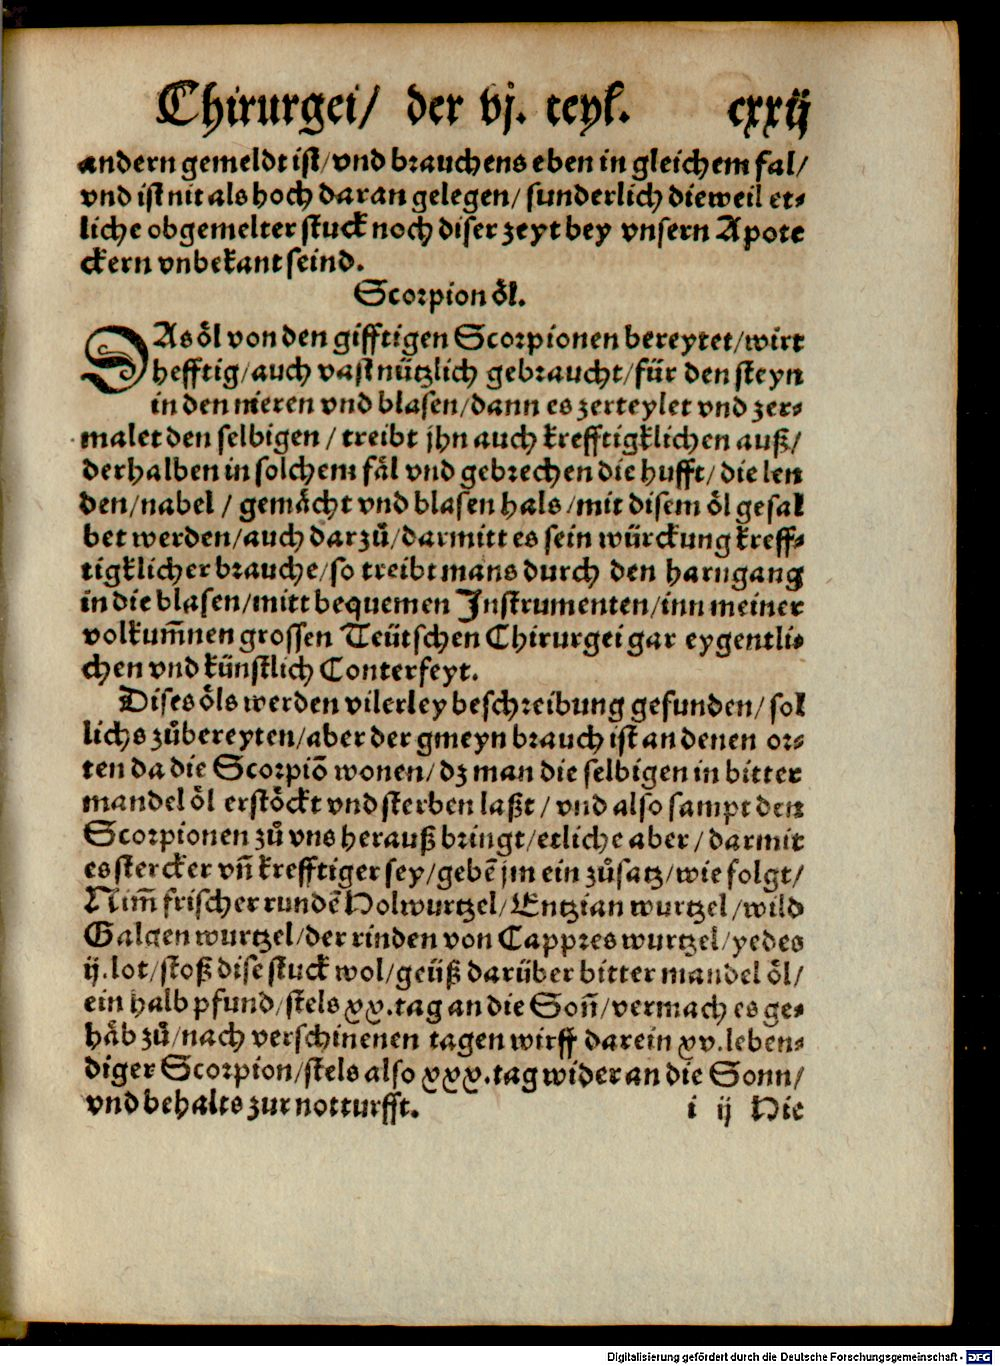 Chirurgei/ der vj. teyl. cxxij
andern gemeldt ist/vnd brauchens eben in gleichem fal/
vnd ist nit als hoch daran gelegen/ sunderlich dieweil et⸗
liche obgemelter stuck noch diser zeyt bey vnsern Apote
ckern vnbekant seind.
Scorpion öl.
DAs öl von den gifftigen Scorpionen bereytet/wirt
hefftig/auch vast nützlich gebraucht/für den steyn
in den nieren vnd blasen/dann es zerteylet vnd zer⸗
malet den selbigen/ treibt jhn auch krefftigklichen auß/
derhalben in solchem fäl vnd gebrechen die hufft/die len
den/nabel/ gemächt vnd blasen hals/mit disem öl gesal
bet werden/auch darzů/darmitt es sein würckung kreff⸗
tigklicher brauche/so treibt mans durch den harngang
in die blasen/mitt bequemen Instrumenten/inn meiner
volkum̃nen grossen Teütschen Chirurgei gar eygentli⸗
chen vnd künstlich Conterfeyt.
Dises öls werden vilerley beschreibung gefunden/sol
lichs zůbereyten/aber der gmeyn brauch ist an denen or⸗
ten da die Scorpiõ wonen/dz man die selbigen in bitter
mandel öl erstöckt vnd sterben laßt/ vnd also sampt den
Scorpionen zů vns herauß bringt/etliche aber/ darmit
es stercker vñ krefftiger sey/gebẽ jm ein zůsatz/wie folgt/
Nim̃ frischer rundẽ Holwurtzel/Entzian wurtzel/wild
Galgen wurtzel/der rinden von Cappres wurtzel/yedes
ij.lot/stoß dise stuck wol/geüß darüber bitter mandel öl/
ein halb pfund/stels xx.tag an die Soñ/vermach es ge⸗
häb zů/nach verschinenen tagen wirff darein xv.leben⸗
diger Scorpion/stels also xxx.tag wider an die Sonn/
vnd behalts zur notturfft.
i ij Hie
Digitalisierung gefördert durch die Deutsche Forschungsgemeinschaft - DFG